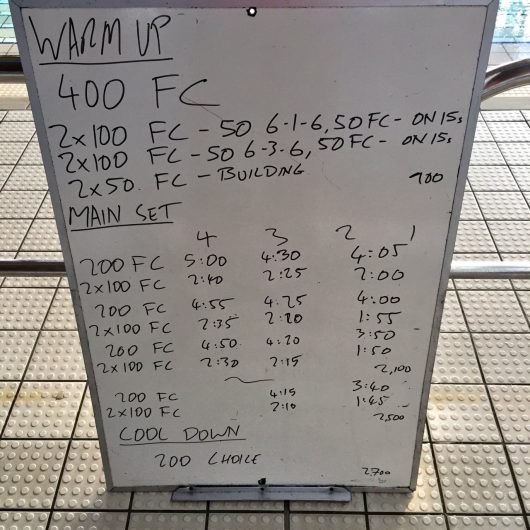 WARM UP
400 FC
2x100 FC - 50 6-1-6, 50 FC - ON 15s
2x100 FC - 50 6-3-6, 50 FC - ON 15s
2x50 FC - BUILDING 900
MAIN SET
4 3 2 1
200 FC 5:00 4:30 4:05
2x100 FC 2:40 2:25 2:00
200 FC 4:55 4:25 4:00
2x100 FC 2:35 2:20 1:55
200 FC 4:50 4:20 3:50
2x100 FC 2:30 2:15 1:50
2,100
200 FC 4:15 3:40
2x100 FC 2:10 1:45
2,500
COOL DOWN
200 CHOICE
2700